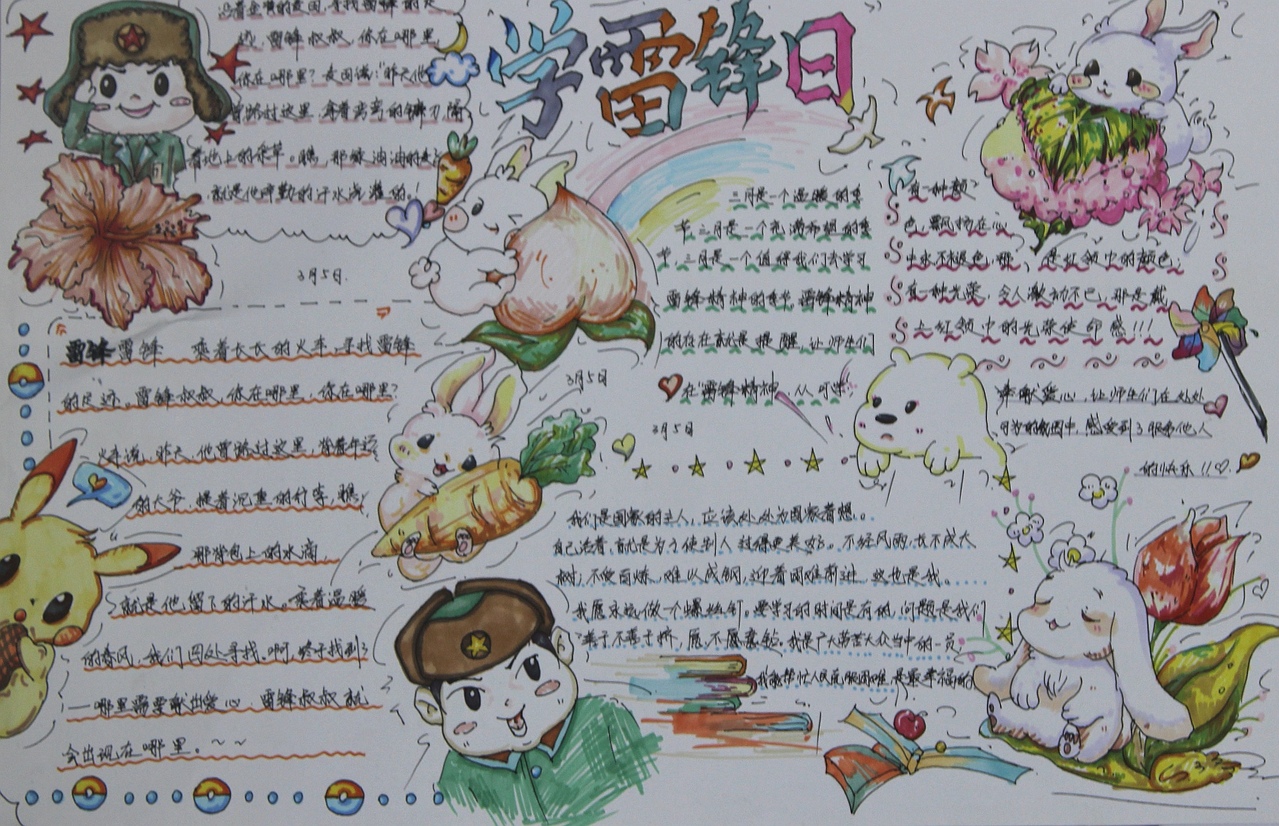 学雷锋日
沿着金黄的麦田,寻找雷锋的足
迹,雷锋叔叔,你在哪里
你在哪里?麦田说:"昨天他
曾路过这里,拿着弯弯的镰刀,隔
着地上的杂草。瞧,那绿油油的
就是他呼勤的汗水浇灌的!
3月5日.
雷锋雷锋 乘着长长的火车,寻找雷锋
的足迹,雷锋叔叔,你在哪里,你在哪里?
火车说,昨天,他曾路过这里,背着年迈
的大爷,提着沉重的行李,瞧,
那背包上的水滴
就是他,留下的汗水。乘着温暖
的春风,我们四处寻找,啊,终于找到
一哪里需要献出爱心 雷锋叔叔就
会出现在哪里。~~
三月是一个温暖的季
节,三月是一个充满希望的季
节,三月是一个值得我们去学习
雷锋精神的季节,雷锋精神
的存在就是提醒,让师生们
在"雷锋精神,从
3月5日
3月5日
有一种颜
色飘扬在心
中永不褪色,哪,是红领巾的颜色,
有一种光荣,令人激动不已,那是戴
上红领巾的光荣使命感!!!
奉献爱心,让师生们在处处
的校园中,感受到了服务他人
的快乐!!
我们是国家的主人,应该处处为国家着想。
自己活着,就是为了使别人过得更美好。不经风雨,长不成大
树,不受百炼,难以成钢,迎着困难前进,这也是我。
我愿永远做一个螺丝钉。要学习的时间是有的,问题是我们
善于不善于挤,愿不愿意钻。我是广大劳苦大众当中的一员,
我能帮忙人民克服困难,是最幸福的